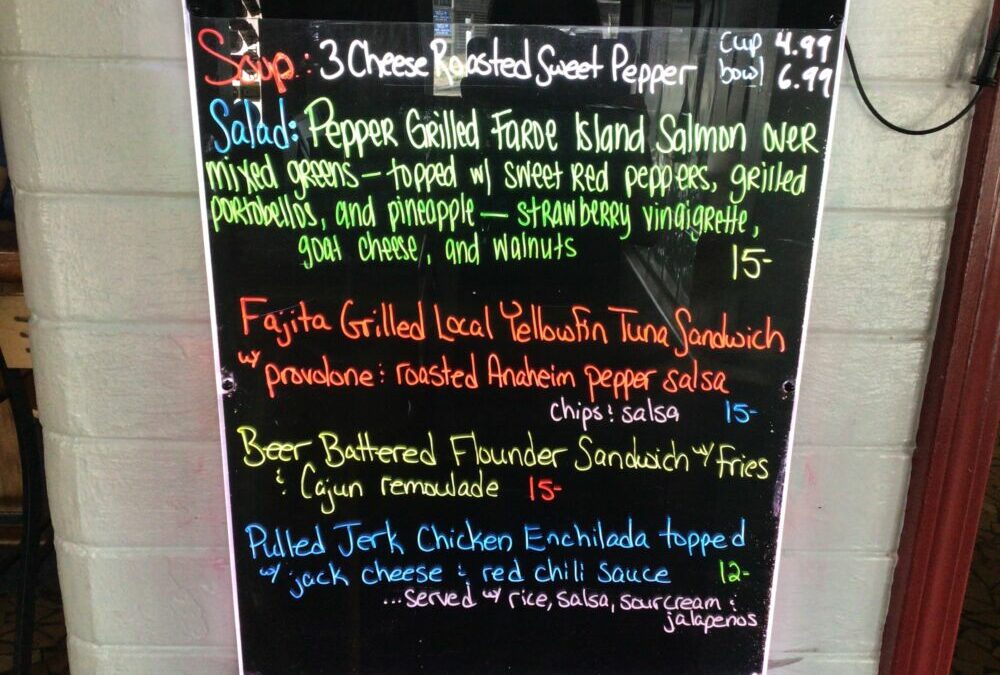 Soup: 3 Cheese Roasted Sweet Pepper cup 4.99
bowl 6.99
Salad: Pepper Grilled Faroe Island Salmon over
mixed greens — topped w/ sweet red peppers, grilled
portobellos, and pineapple — strawberry vinaigrette,
goat cheese, and walnuts 15-
Fajita Grilled Local Yellowfin Tuna Sandwich
w/ provolone & roasted Anaheim pepper salsa
chips & salsa 15-
Beer Battered Flounder Sandwich w/ fries
& Cajun remoulade 15-
Pulled Jerk Chicken Enchilada topped
w/ jack cheese & red chili sauce 12-
...served w/ rice, salsa, sour cream &
jalapeños